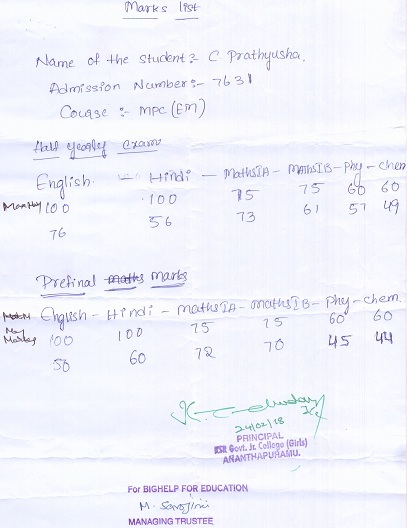 Marks list
Name of the student :- C Prathyusha.
Admission Number :- 7631
Course :- MPC (EM)
Half yearly exams
English - Hindi - Maths IA - Maths IB - Phy - chem
100 100 75 75 60 60
76 56 73 61 57 49
Prefinal maths marks
English - Hindi - maths IA - maths IB - phy - chem.
Max Marks 100 100 75 75 60 60
50 60 72 70 45 44
24/02/18
PRINCIPAL
KSR Govt. Jr. College (Girls)
ANANTHAPURAMU.
For BIGHELP FOR EDUCATION
M. Sarojini
MANAGING TRUSTEE